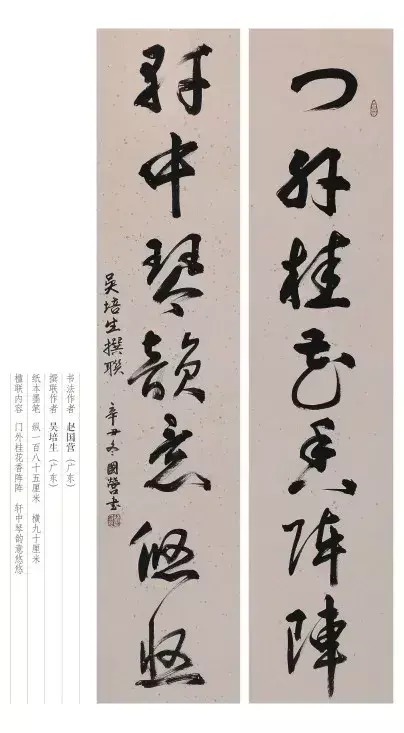 门外桂花香阵陣
軒中琴韻意悠悠
吴培生撰聯 辛丑冬國营书
书法作者 赵国营（广东）
撰联作者 吴培生（广东）
纸本墨笔 纵一百八十五厘米 横九十厘米
楹联内容 门外桂花香阵阵 轩中琴韵意悠悠